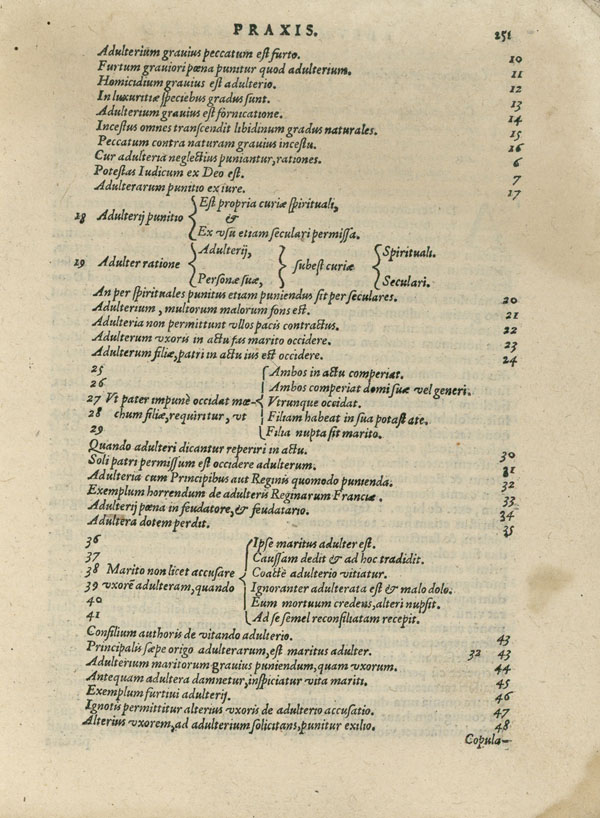 PRAXIS. 251
Adulterium grauius peccatum est furto. 10
Furtum grauiori pœna punitur quod adulterium. 11
Homicidium grauius est adulterio. 12
In luxuritiæ speciebus gradus sunt. 13
Adulterium grauius est fornicatione. 14
Incestus omnes transcendit libidinum gradus naturales. 15
Peccatum contra naturam grauius incestu. 16
Cur adulteria neglectius puniantur, rationes. 6
Potestas Iudicum ex Deo est. 7
Adulterarum punitio ex iure. 17
Est propria curiæ spirituali,
18 Adulterij punitio &
Ex vsu etiam seculari permissa.
Adulterij, Spirituali.
19 Adulter ratione subest curiæ
Personæ suæ, Seculari.
An per spirituales punitus etiam puniendus sit per seculares. 20
Adulterium, multorum malorum fons est. 21
Adulteria non permittunt vllos pacis contractus. 22
Adulterum vxoris in actu fas marito occidere. 23
Adulterum filiæ, patri in actu ius est occidere. 24
25 Ambos in actu comperiat.
26 Ambos comperiat domi suæ vel generi.
27 Vt pater impunè occidat mœ- Vtrunque occidat.
28 chum filiæ, requiritur, vt Filiam habeat in sua potastate.
29 Filia nupta sit marito.
Quando adulteri dicantur reperiri in actu. 30
Soli patri permissum est occidere adulterum. 31
Adulteria cum Principibus aut Reginis quomodo punienda. 32
Exemplum horrendum de adulteris Reginarum Franciæ. 33
Adulterij pœna in feudatore, & feudatario. 34
Adultera dotem perdit. 35
36 Ipse maritus adulter est.
37 Caussam dedit & ad hoc tradidit.
38 Marito non licet accusare Coactè adulterio vitiatur.
39 vxorē adulteram, quando Ignoranter adulterata est & malo dolo.
40 Eum mortuum credens, alteri nupsit.
41 Ad se semel reconsiliatam recepit.
Consilium authoris de vitando adulterio. 43
Principalis sæpe origo adulterarum, est maritus adulter. 32 43
Adulterium maritorum grauius puniendum, quam vxorum. 44
Antequam adultera damnetur, inspiciatur vita mariti. 45
Exemplum furtiui adulterij. 46
Ignotis permittitur alterius vxoris de adulterio accusatio. 47
Alterius vxorem, ad adulterium solicitans, punitur exilio. 48
Copula-